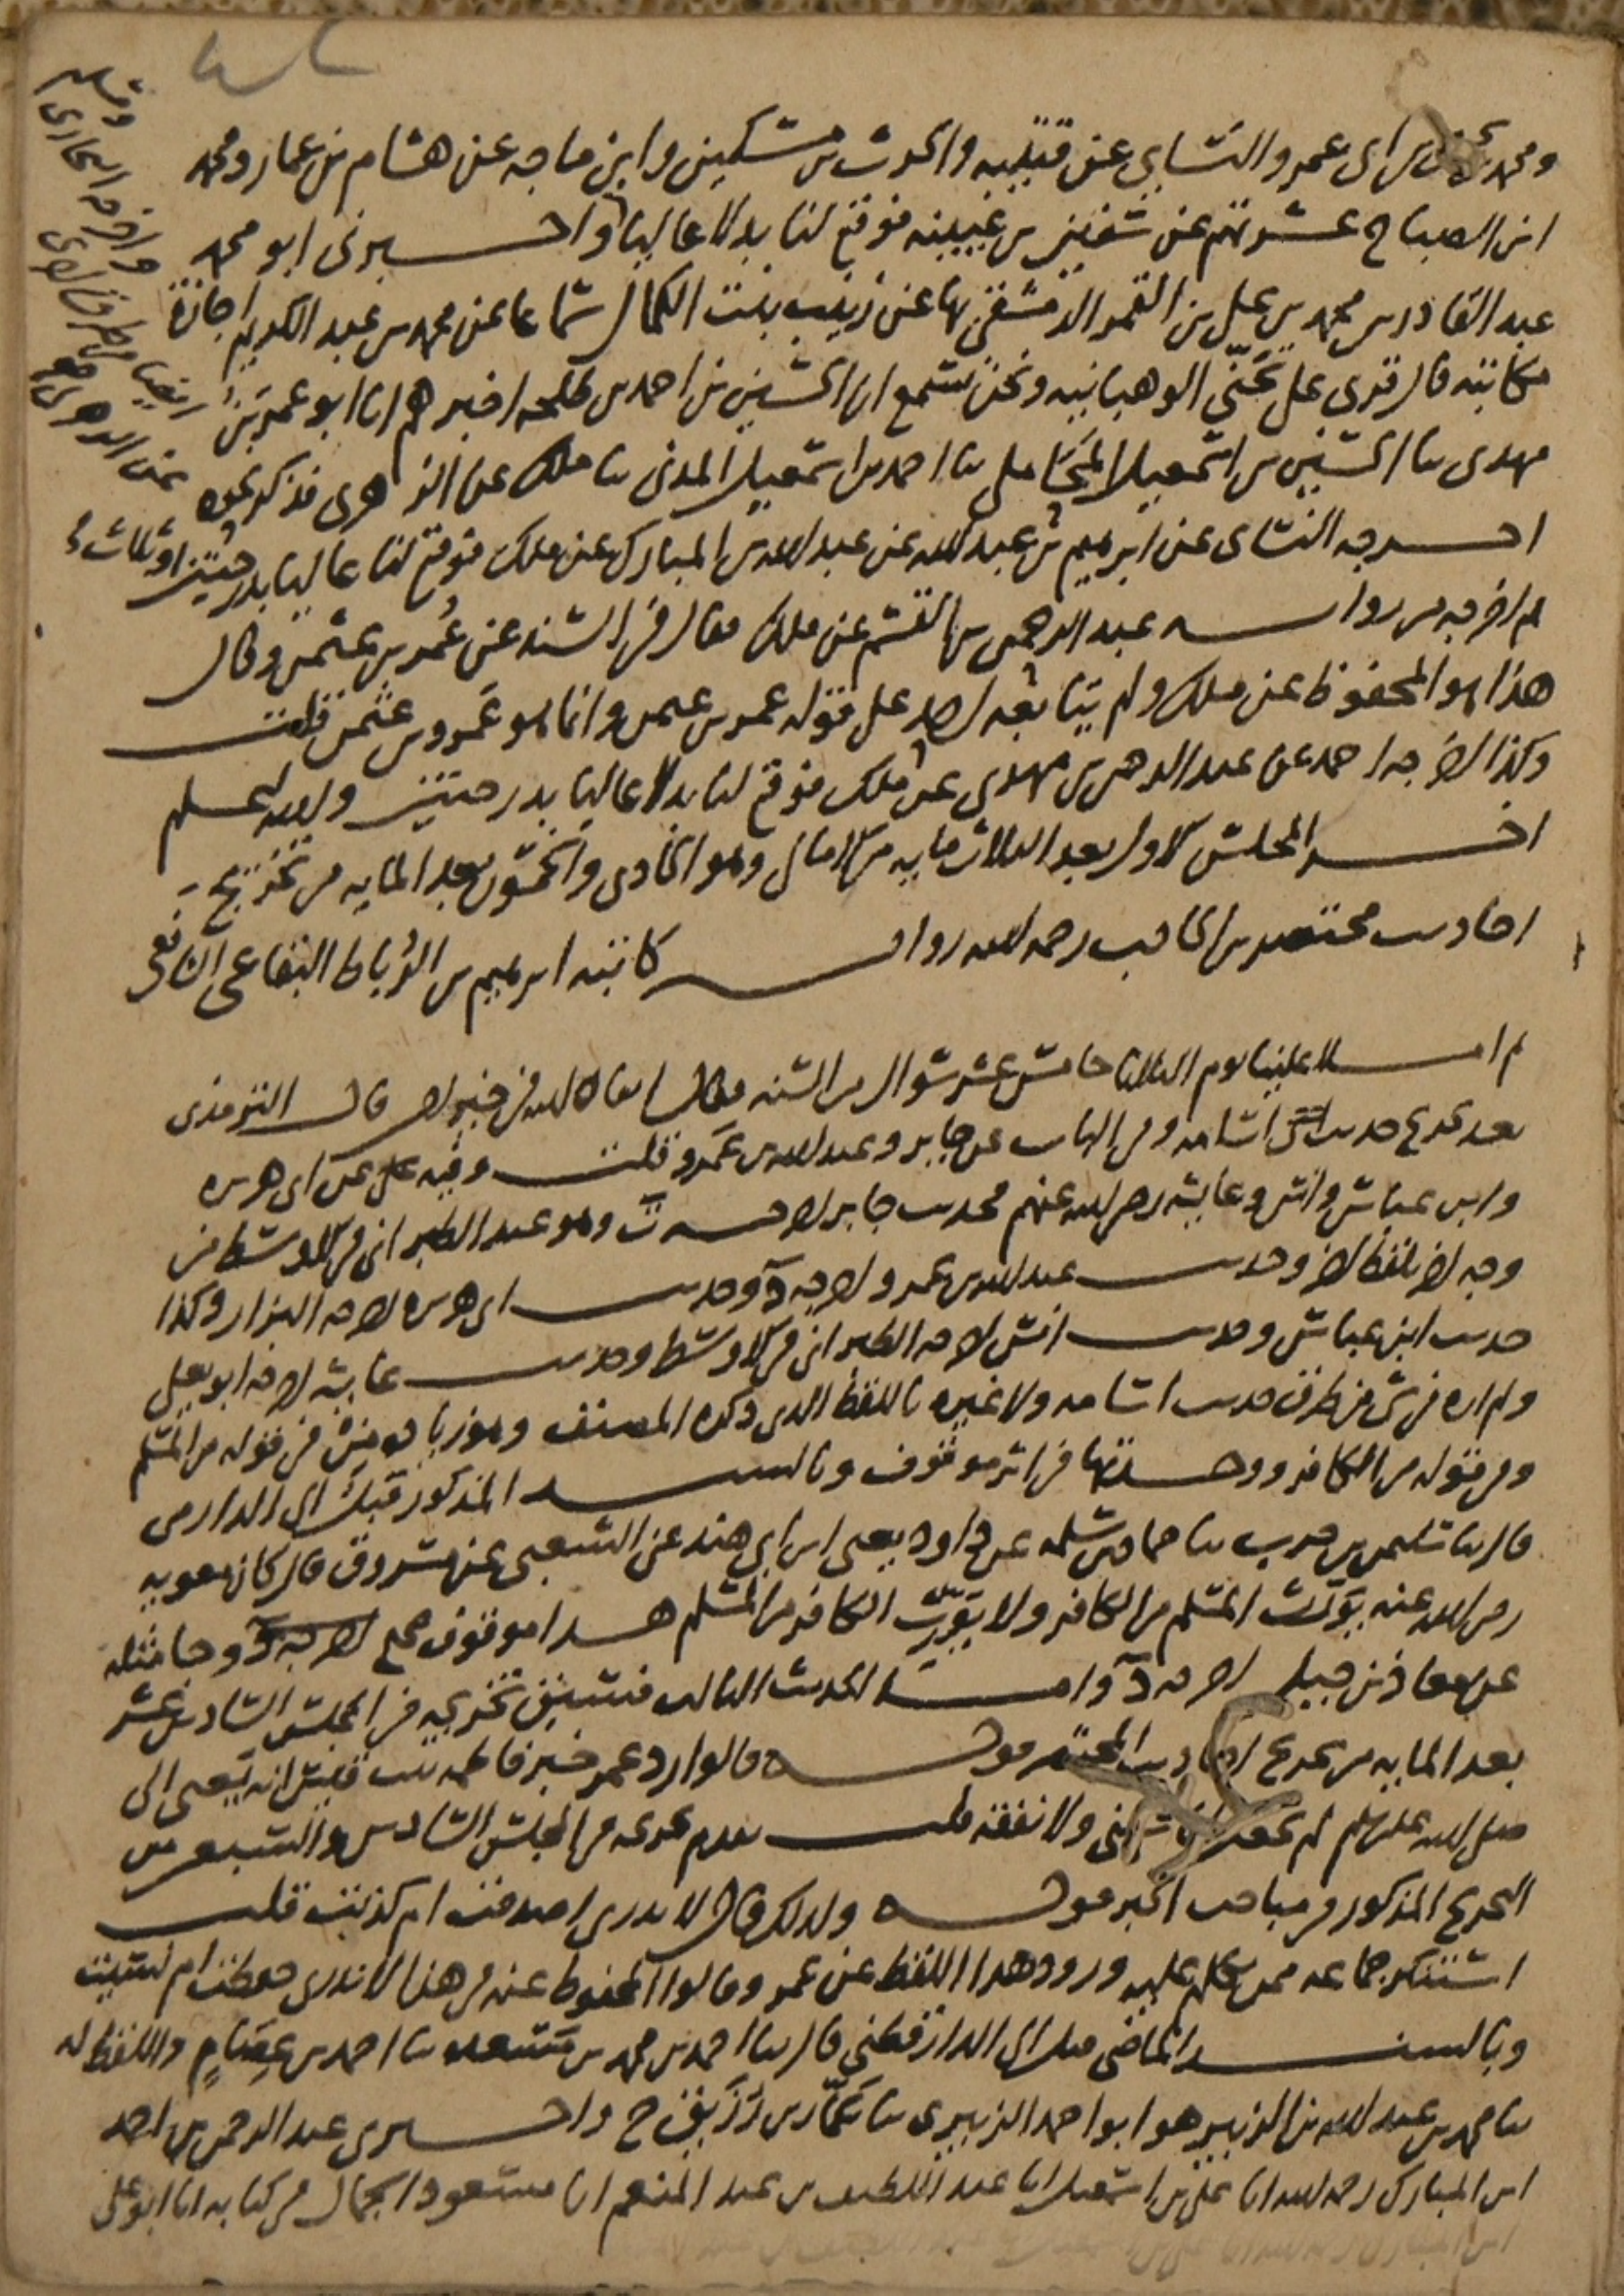 ومحمد بن يحيى بن أبي عمر والنسائي عن قتيبة والحرث بن مسكين وابن ماجه عن هشام بن عمار ومحمد
ابن الصباح عشرتهم عن سفين بن عيينة فوقع لنا بدلا عاليا واخبرني ابو محمد
عبد القادر بن محمد بن علي بن القمر الدمشقي بها عن زينب بنت الكمال سماعا عن محمد بن عبد الكريم اجازة
مكاتبة قال قرئ على تجنى الوهبانية ونحن نسمع ان الحسين بن احمد بن طلحة اخبرهم انا ابو عمر بن
مهدي ثنا الحسين بن اسمعيل المحاملي ثنا احمد بن اسمعيل المدني ثنا ملك عن الزهري فذكر نحوه
اخرجه النسائي عن ابرهيم بن عبد الله عن عبد الله بن المبارك عن ملك فوقع لنا عاليا بدرجتين او ثلاث
ثم اخرجه من رواية عبد الرحمن بن القسم عن ملك فقال في السند عن عمر بن عثمن وقال
هذا هو المحفوظ عن ملك ولم يتابعه احد على قوله عمر بن عثمن وانما هو عمرو بن عثمن قلت
وكذا اخرجه احمد عن عبد الرحمن بن مهدي عن ملك فوقع لنا بدلا عاليا بدرجتين والله اعلم
اخر المجلس الاول بعد الثلاث مايه من الامالي وهو الحادي والخمسون بعد المايه من تخريج
احاديث مختصر ابن الحاجب رحمه الله رواية كاتبه ابرهيم بن الرباط البقاعي الشافعي
ثم املا علينا يوم الثلاثا خامس عشر شوال من السنة فقال ابقاه الله في خير قال الترمذي
بعد تخريج حديث اسامه وفي الباب عن جابر وعبد الله بن عمرو قلت وفيه عن ابي هريره
وابن عباس وانس وعايشه رضي الله عنهم فحديث جابر اخرجه ت وهو عند الطبراني في الاوسط من
وجه اخر بلفظ اخر وحديث عبد الله بن عمرو اخرجه د وحديث ابي هريره اخرجه البزار وكذا
حديث ابن عباس وحديث انس اخرجه الطبراني في الاوسط وحديث عايشه اخرجه ابو يعلى
ولم اره في شي من طرق حديث اسامه ولا غيره باللفظ الذي ذكره المصنف وهو زيادة من في قوله من المسلم
وفي قوله من الكافر ووجدتها في اثر موقوف وبالسند المذكور قبل الى الدارمي
قال ثنا سليمن بن حرب ثنا حماد بن سلمه عن داود يعني ابن ابي هند عن الشعبي عن مسروق قال كان معويه
رضي الله عنه يورث المسلم من الكافر ولا يورث الكافر من المسلم هذا موقوف صحيح اخرجه د وجا مثله
عن معاذ بن جبل اخرجه د واما الحديث الثالث فسبق تخريجه في المجلس السادس عشر
بعد المايه من تخريج احاديث المختصر قوله قالوا رد عمر خبر فاطمه بنت قيس انه يعني النبي
صلى الله عليه وسلم لم يجعل لها سكنى ولا نفقه قلت تقدم تخريجه في المجلس السادس والتسعين من
التخريج المذكور في مباحث الخبر قوله ولذلك قال لا ندري اصدقت ام كذبت قلت
استنكر جماعه ممن تكلم عليه ورود هذا اللفظ عن عمر وقالوا المحفوظ عنه في هذا لا ندري حفظت ام نسيت
وبالسند الماضي قبل الى الدارقطني قال ثنا احمد بن محمد بن سعيد ثنا احمد بن عصام واللفظ له
ثنا محمد بن عبد الله بن الزبير هو ابو احمد الزبيري ثنا عمار بن رزيق ح واخبرني عبد الرحمن بن احمد
ابن المبارك رحمه الله انا علي بن اسمعيل انا عبد اللطيف بن عبد المنعم انا مسعود الجمال في كتابه انا ابو علي